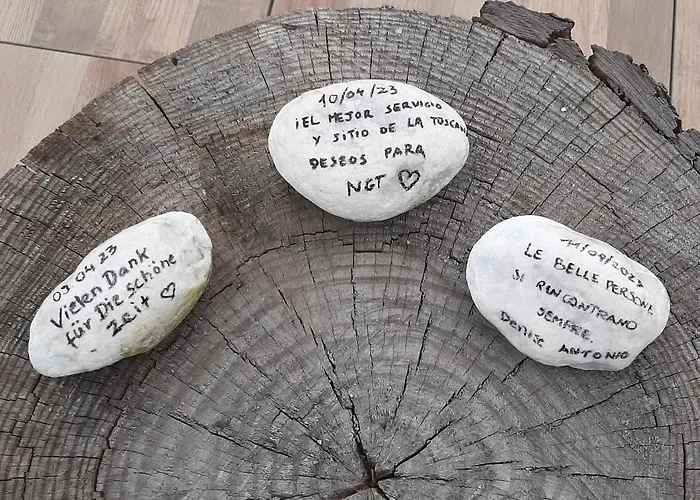 03.04.23
Vielen Dank
für Die schöne
Zeit ♡
10/04/23
¡EL MEJOR SERVICIO
Y SITIO DE LA TOSCANA
DESEOS PARA
NGT ♡
11/09/2023
LE BELLE PERSONE
SI RINCONTRANO
SEMPRE.
Denise ANTONIO